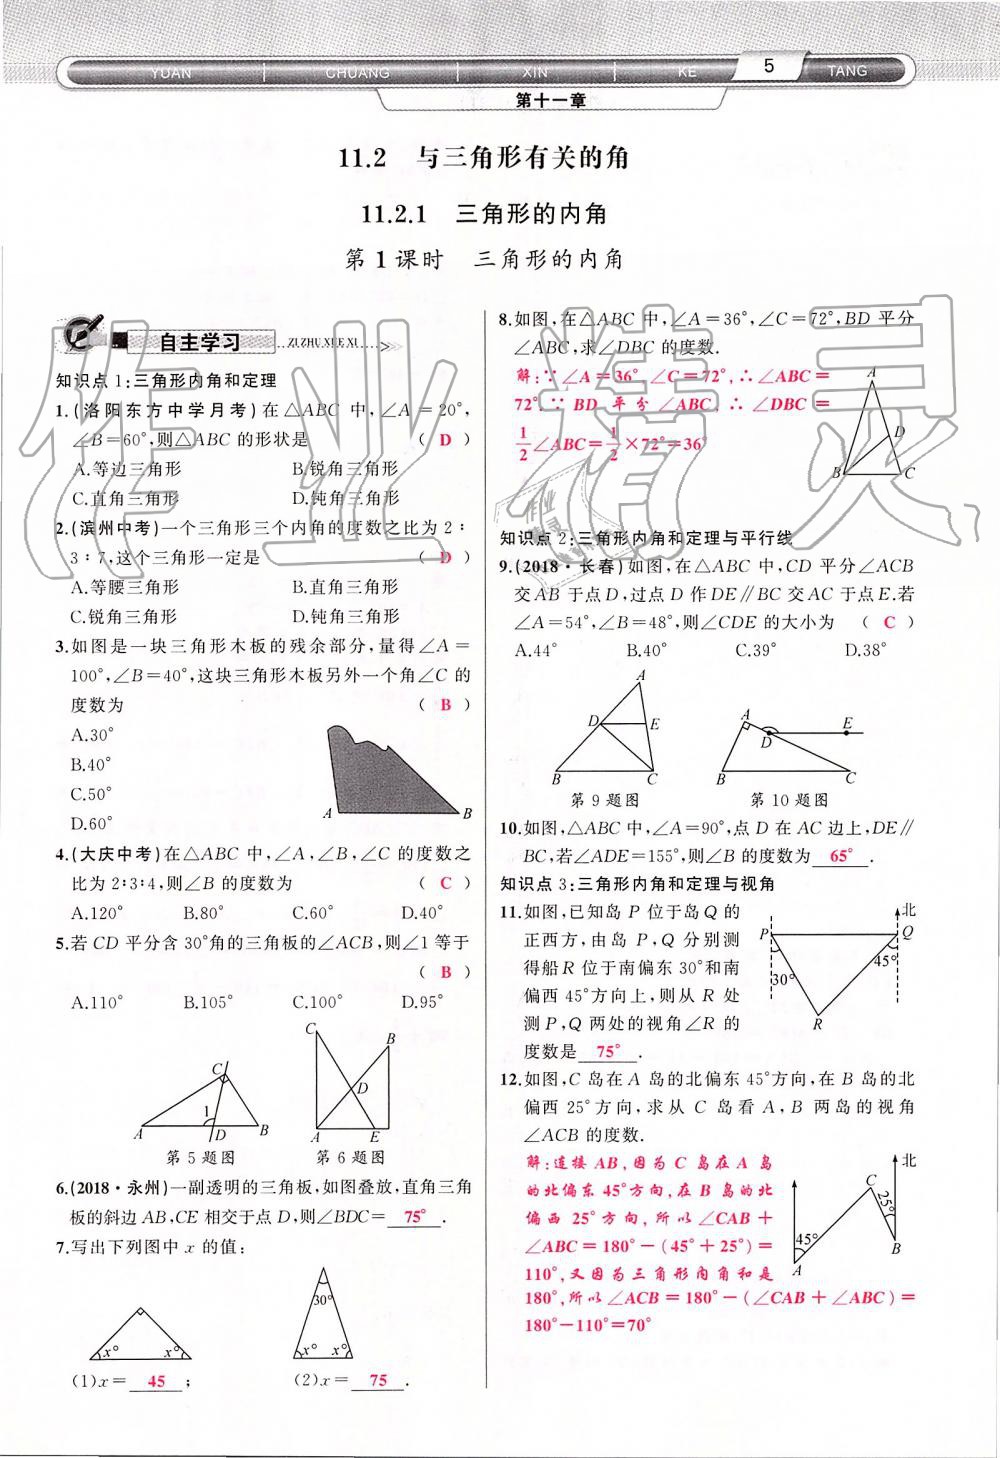 YUAN CHUANG XIN KE 5 TANG
第十一章
11.2 与三角形有关的角
11.2.1 三角形的内角
第1课时 三角形的内角
自主学习 ZI ZHU XUE XI
知识点1:三角形内角和定理
1.(洛阳东方中学月考)在△ABC 中,∠A=20°,
∠B=60°,则△ABC 的形状是 ( D )
A.等边三角形 B.锐角三角形
C.直角三角形 D.钝角三角形
2.(滨州中考)一个三角形三个内角的度数之比为2∶
3∶7,这个三角形一定是 ( D )
A.等腰三角形 B.直角三角形
C.锐角三角形 D.钝角三角形
3.如图是一块三角形木板的残余部分,量得∠A=
100°,∠B=40°,这块三角形木板另外一个角∠C 的
度数为 ( B )
A.30°
B.40°
C.50°
D.60°
A B
4.(大庆中考)在△ABC 中,∠A,∠B,∠C 的度数之
比为2∶3∶4,则∠B 的度数为 ( C )
A.120° B.80° C.60° D.40°
5.若CD 平分含30°角的三角板的∠ACB,则∠1等于
( B )
A.110° B.105° C.100° D.95°
C 1 A D B
C B D A E
第5题图 第6题图
6.(2018·永州)一副透明的三角板,如图叠放,直角三角
板的斜边AB,CE 相交于点D,则∠BDC= 75° .
7.写出下列图中 x 的值:
x° x°
30° x° x°
(1)x= 45 ; (2)x= 75 .
8.如图,在△ABC 中,∠A=36°,∠C=72°,BD 平分
∠ABC,求∠DBC 的度数.
解:∵∠A=36°,∠C=72°,∴∠ABC=
72°.∵BD 平分∠ABC,∴∠DBC=
1/2∠ABC=1/2×72°=36°
A D B C
知识点2:三角形内角和定理与平行线
9.(2018·长春)如图,在△ABC 中,CD 平分∠ACB
交AB 于点D,过点D 作DE∥BC 交AC 于点E.若
∠A=54°,∠B=48°,则∠CDE 的大小为 ( C )
A.44° B.40° C.39° D.38°
A D E B C
A D E B C
第9题图 第10题图
10.如图,△ABC 中,∠A=90°,点D 在AC 边上,DE∥
BC,若∠ADE=155°,则∠B 的度数为 65° .
知识点3:三角形内角和定理与视角
11.如图,已知岛 P 位于岛 Q 的
正西方,由岛 P,Q 分别测
得船R 位于南偏东30°和南
偏西45°方向上,则从 R 处
测P,Q 两处的视角∠R 的
度数是 75° .
北 P Q 30° 45° R
12.如图,C 岛在A 岛的北偏东45°方向,在B 岛的北
偏西25°方向,求从 C 岛看 A,B 两岛的视角
∠ACB 的度数.
解:连接AB,因为C 岛在A 岛
的北偏东45°方向,在B 岛的北
偏西25°方向,所以∠CAB+
∠ABC=180°-(45°+25°)=
110°,又因为三角形内角和是
180°,所以∠ACB=180°-(∠CAB+∠ABC)=
180°-110°=70°
北 C 25° 45° B A
作业精灵